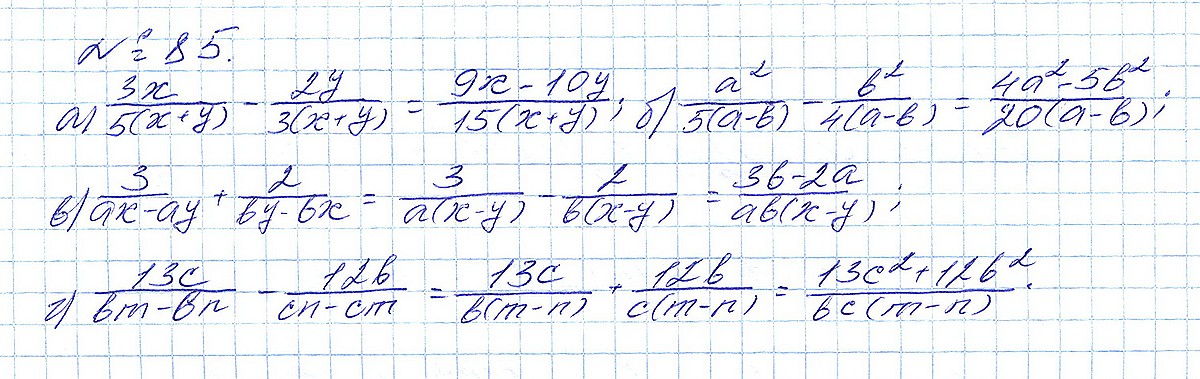 № 85.
а) 3x/5(x+y) - 2y/3(x+y) = 9x-10y/15(x+y); б) a²/5(a-b) - b²/4(a-b) = 4a²-5b²/20(a-b);
в) 3/ax-ay + 2/by-bx = 3/a(x-y) - 2/b(x-y) = 3b-2a/ab(x-y);
г) 13c/bm-bn - 12b/cn-cm = 13c/b(m-n) + 12b/c(m-n) = 13c²+12b²/bc(m-n).